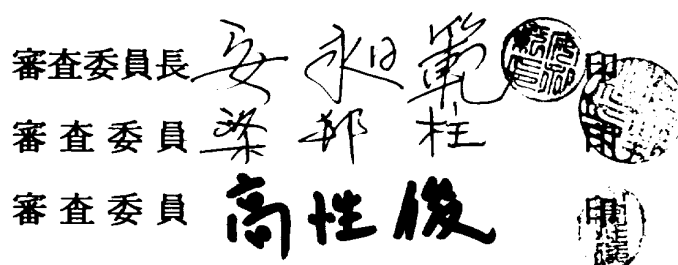 審査委員長 安 昶 範 印
審査委員 梁 邦 柱 印
審査委員 高 性 俊 印